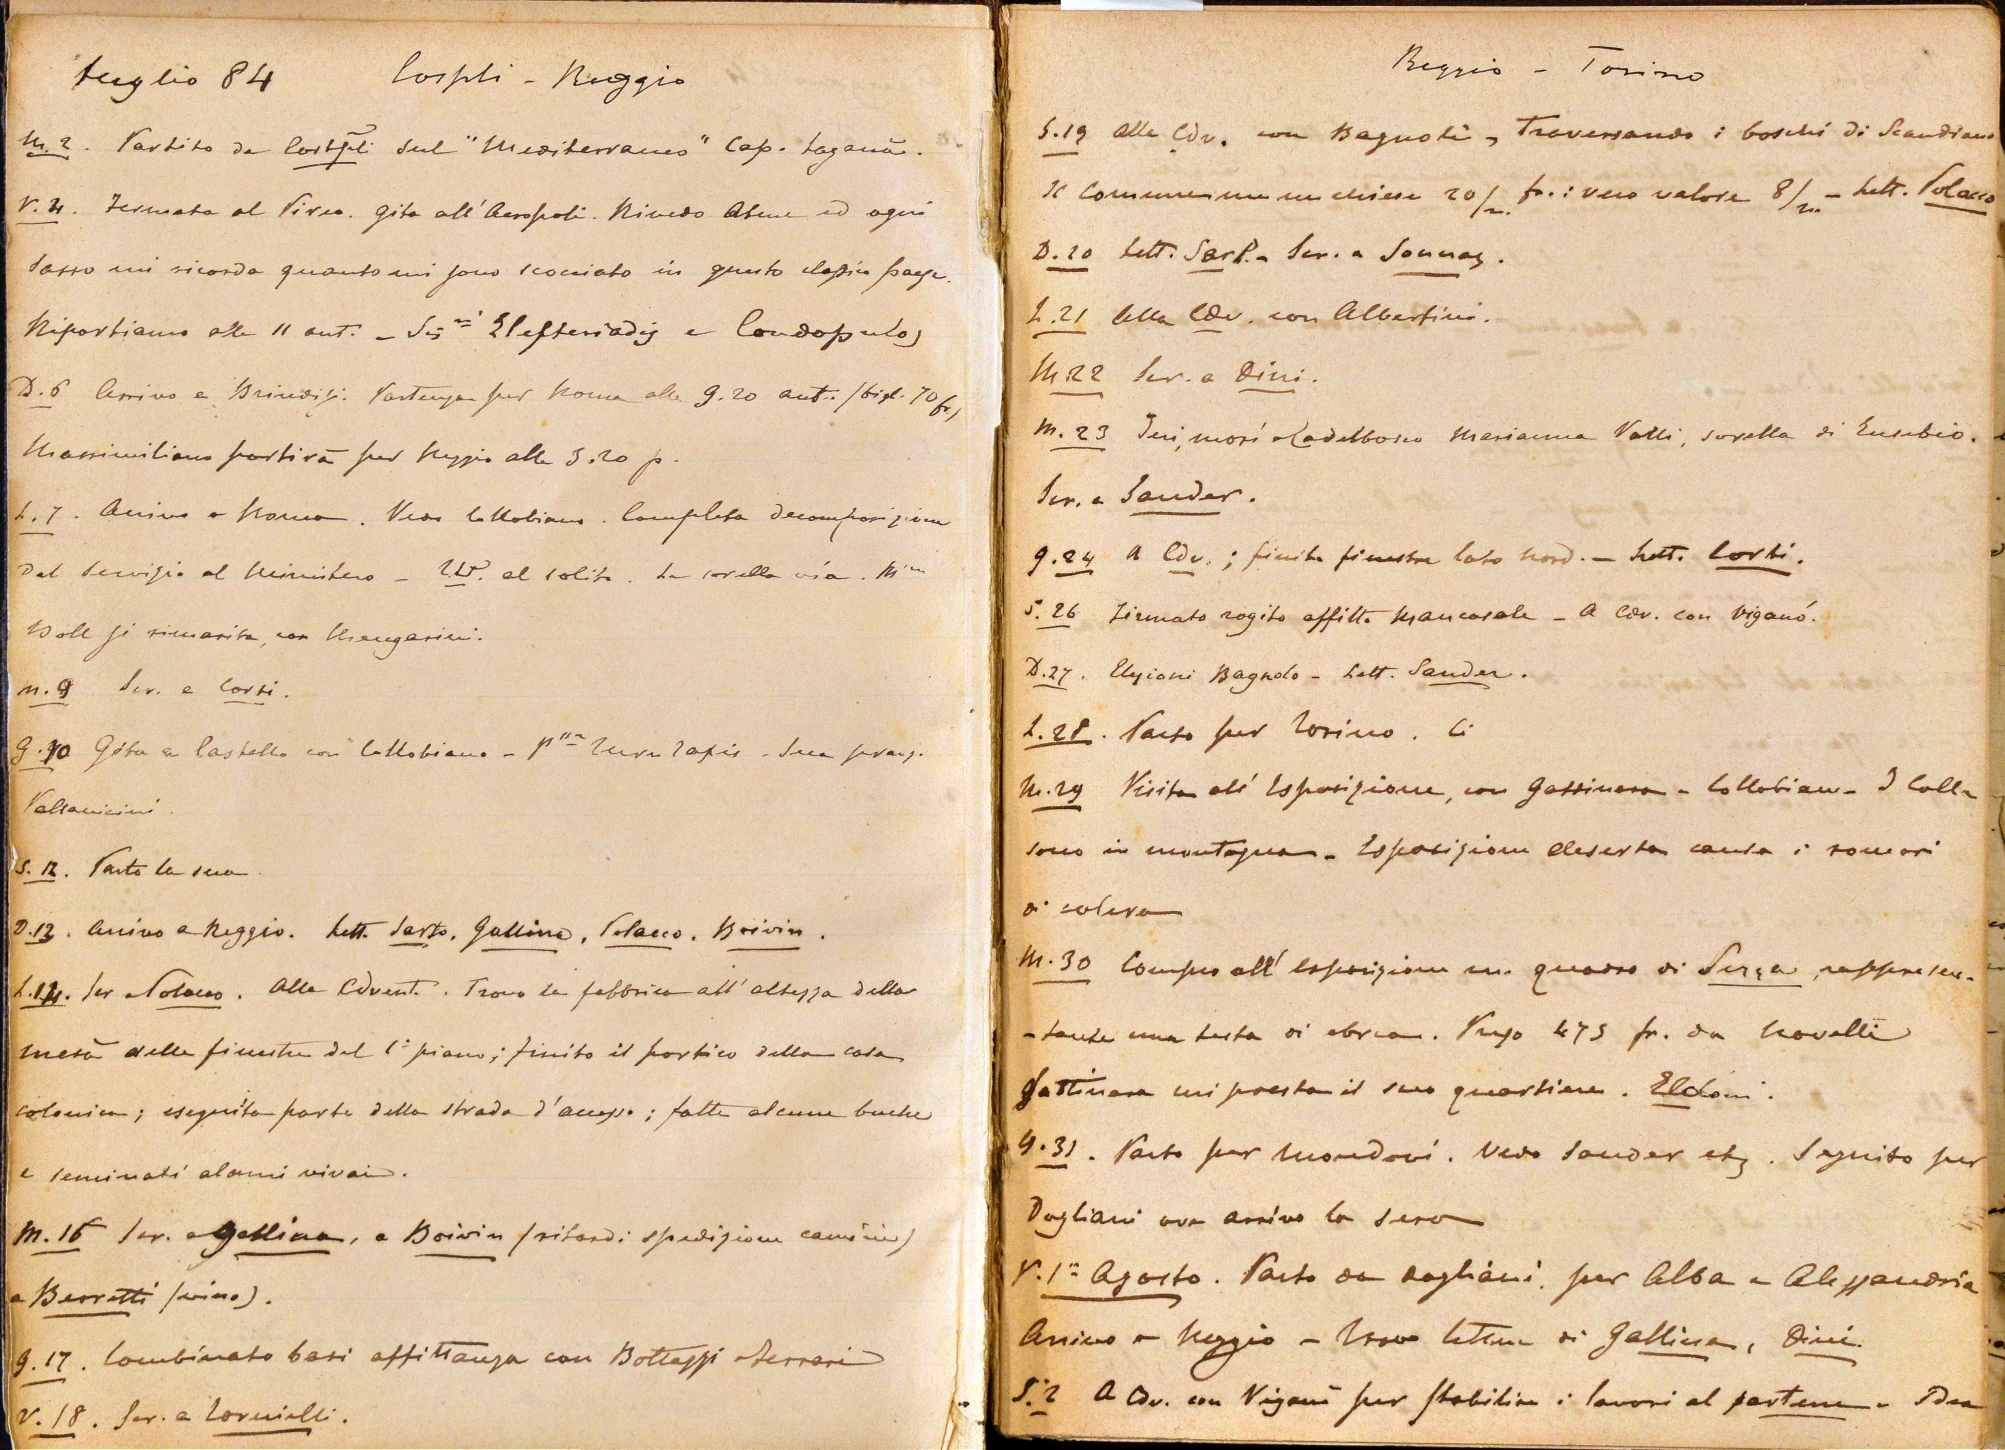 Luglio 84 Cospli - Reggio
M. 2. Partito da Costpli sul "Mediterraneo" Cap. Laganà.
V. 4. Fermata al Pireo. Gita all'Acropoli. Rivedo Atene ed ogni
sasso mi ricorda quanto mi sono scocciato in questo classico paese.
Ripartiamo alle 11 ant. - Sig.ri Elefteriadis e Condopulos
D. 6 Arrivo a Brindisi. Partenza per Roma alle 9.20 ant. (bigl. 70 fr.)
Massimiliano partirà per Reggio alle 3.20 p.
L. 7. Arrivo a Roma. Vedo Collobiano. Completa decomposizione
del servizio al Ministero - al solito. La sorella via. M.me
Boll si rimarita, con Mengarini.
M. 9 Scr. a Corti.
G. 10 Gita a Castello con Collobiano - Sua pranz.
Pallavicini.
S. 12. Parto la sera
D. 13. Arrivo a Reggio. Lett. Sarto, Gallina, Polacco, Boivin.
L. 14. Scr a Polacco. Alla Cdvent. Trovo la fabbrica all'altezza della
metà delle finestre del 1° piano; finito il portico della casa
colonica; eseguita parte della strada d'accesso; fatte alcune buche
e seminati alcuni vivai.
M. 16 Scr. a Gallina, a Boivin (ritardi spedizione camini)
a Beoretti (vino).
G. 17. Combinato basi affittanza con Bottazzi e Ferrari
V. 18. Scr. a Tornielli.
Reggio - Torino
S. 19 Alla Cdv. con Bagnoli, traversando i boschi di Scandiano
Il Comune me ne chiese 20/m. fr.: vero valore 8/m - Lett. Polacco
D. 20 Lett. Sarl. - Scr. a Sonnaz.
L. 21 Alla Cdv. con Albertini.
M. 22 Scr. a Dini.
M. 23 Ieri, morì a Cadelbosco Marianna Valli, sorella di Eusebio.
Scr. a Sander.
G. 24 A Cdv.; finite finestre lato nord. - Lett. Corti.
S. 26 Firmato rogito affitto Mancasale - A Cdv. con Viganó.
D. 27. Elezioni Bagnolo - Lett. Sander.
L. 28. Parto per Torino. Ci
M. 29 Visita all'Esposizione, con Gattinara - Collobiano - I Colla
sono in montagna - Esposizione deserta causa i romori
di colera
M. 30 Compro all'esposizione un quadro di Serra, rappresen-
-tante una testa di ebrea. Pago 475 fr. da Novelli
Gattinara mi presta il suo quartiere.
G. 31. Parto per Mondovì. Vedo Sander etz. Seguito per
Dogliani ove arrivo la sera
V. 1° Agosto. Parto da Dogliani, per Alba e Alessandria
Arrivo a Reggio - Trovo lettere di Gallina, Dini.
S. 2 A Cdv. con Viganò per stabilire i lavori al parterre - Idea